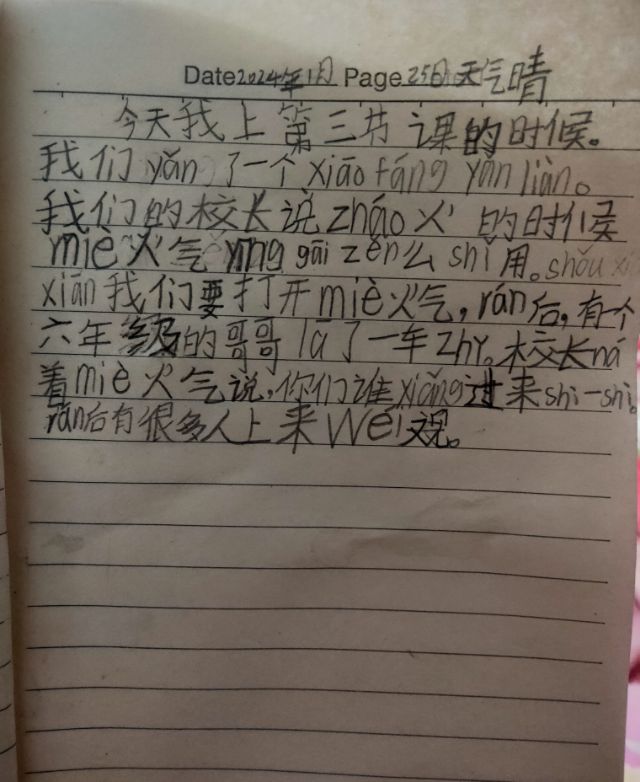 Date 2024年1月 Page 25日天气晴
今天我上第三节课的时候。
我们yǎn了一个xiāo fáng yǎn liàn。
我们的校长说zháo火的时候
miè火气yīng gāi zěn么shǐ用。shǒu
xiān我们要打开miè火气,rán后,有一个
六年级的哥哥lā了一车zhǐ。校长ná
着miè火气说,你们谁xiǎng过来shì一shì。
rán后有很多人上来wéi观。